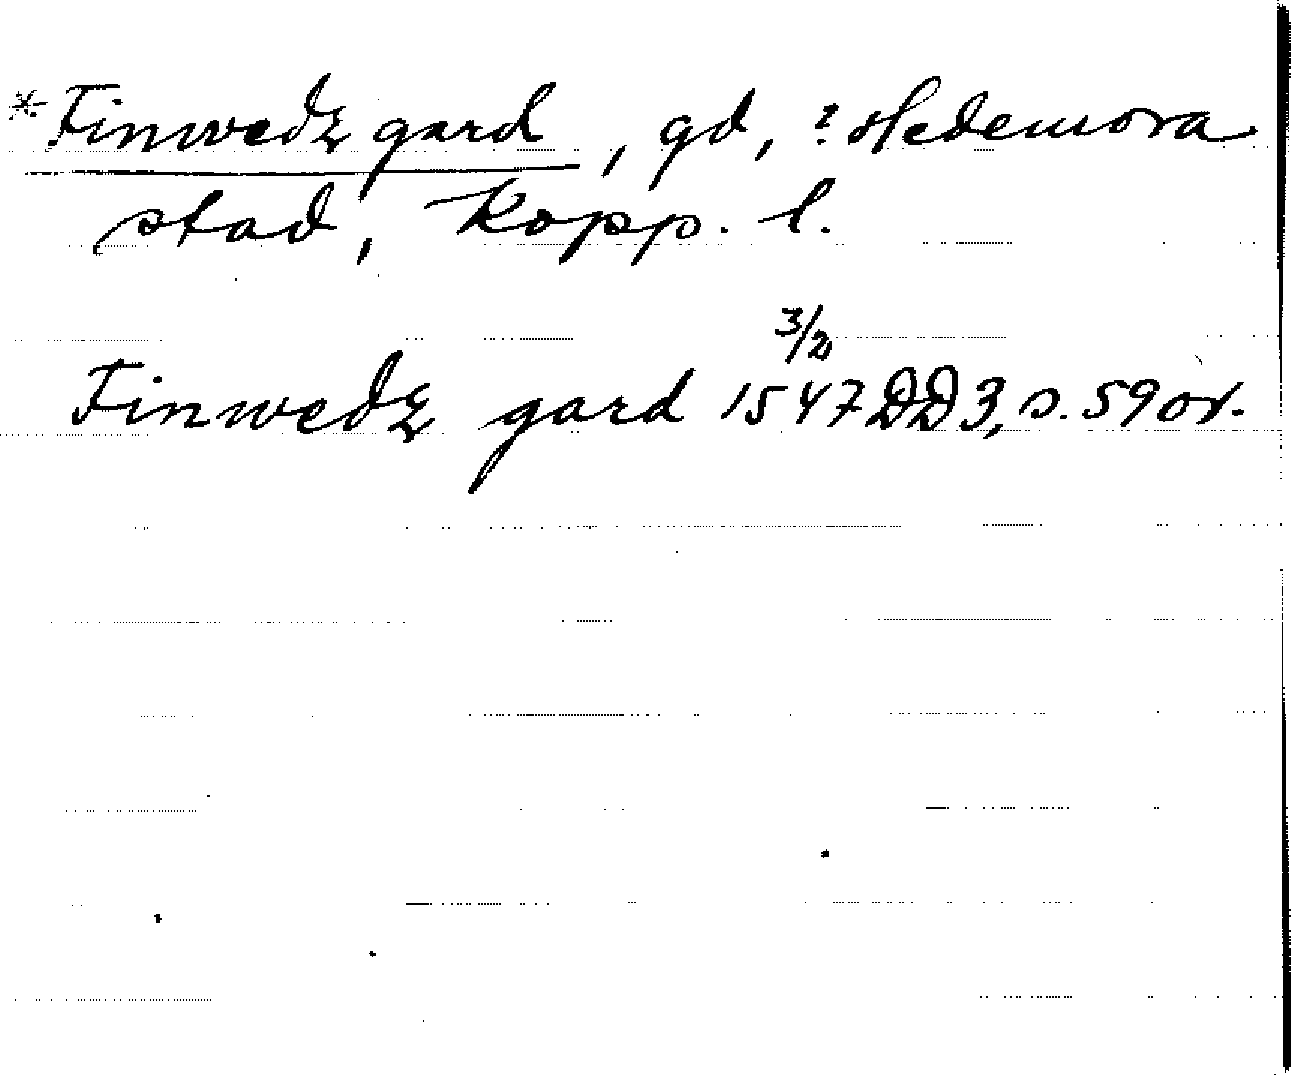 *Finwedz gard, gd, ? Hedemora
stad, Kopp. l.
3/2
Finwedz gard 1547 DD3, s. 59 or.